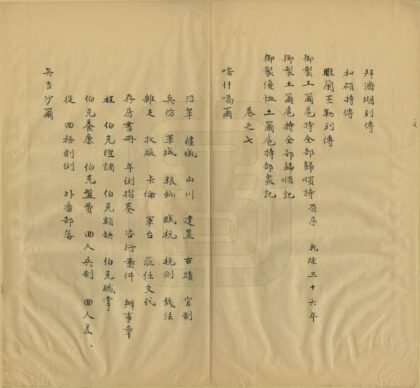 拜濟瑚列傳
和碩特傳
御製土爾扈特全部歸順詩 有序 乾隆三十六年
御製土爾扈特全部歸順記
御製優恤土爾扈特部衆記
卷之七
喀什噶爾
沿革 疆域 山川 建置 古蹟 官制
兵防 軍械 粮餉 賦税 税則 錢法
雜支 牧厰 卡倫 軍台 茌任交代
存房書冊 年例摺奏 咨行案件 辦事章
程 伯克理謂 伯克額缺 伯克職掌
伯克養廉 伯克盤費 回人兵制 回人差
役 回務則例 外番部落
英吉沙爾